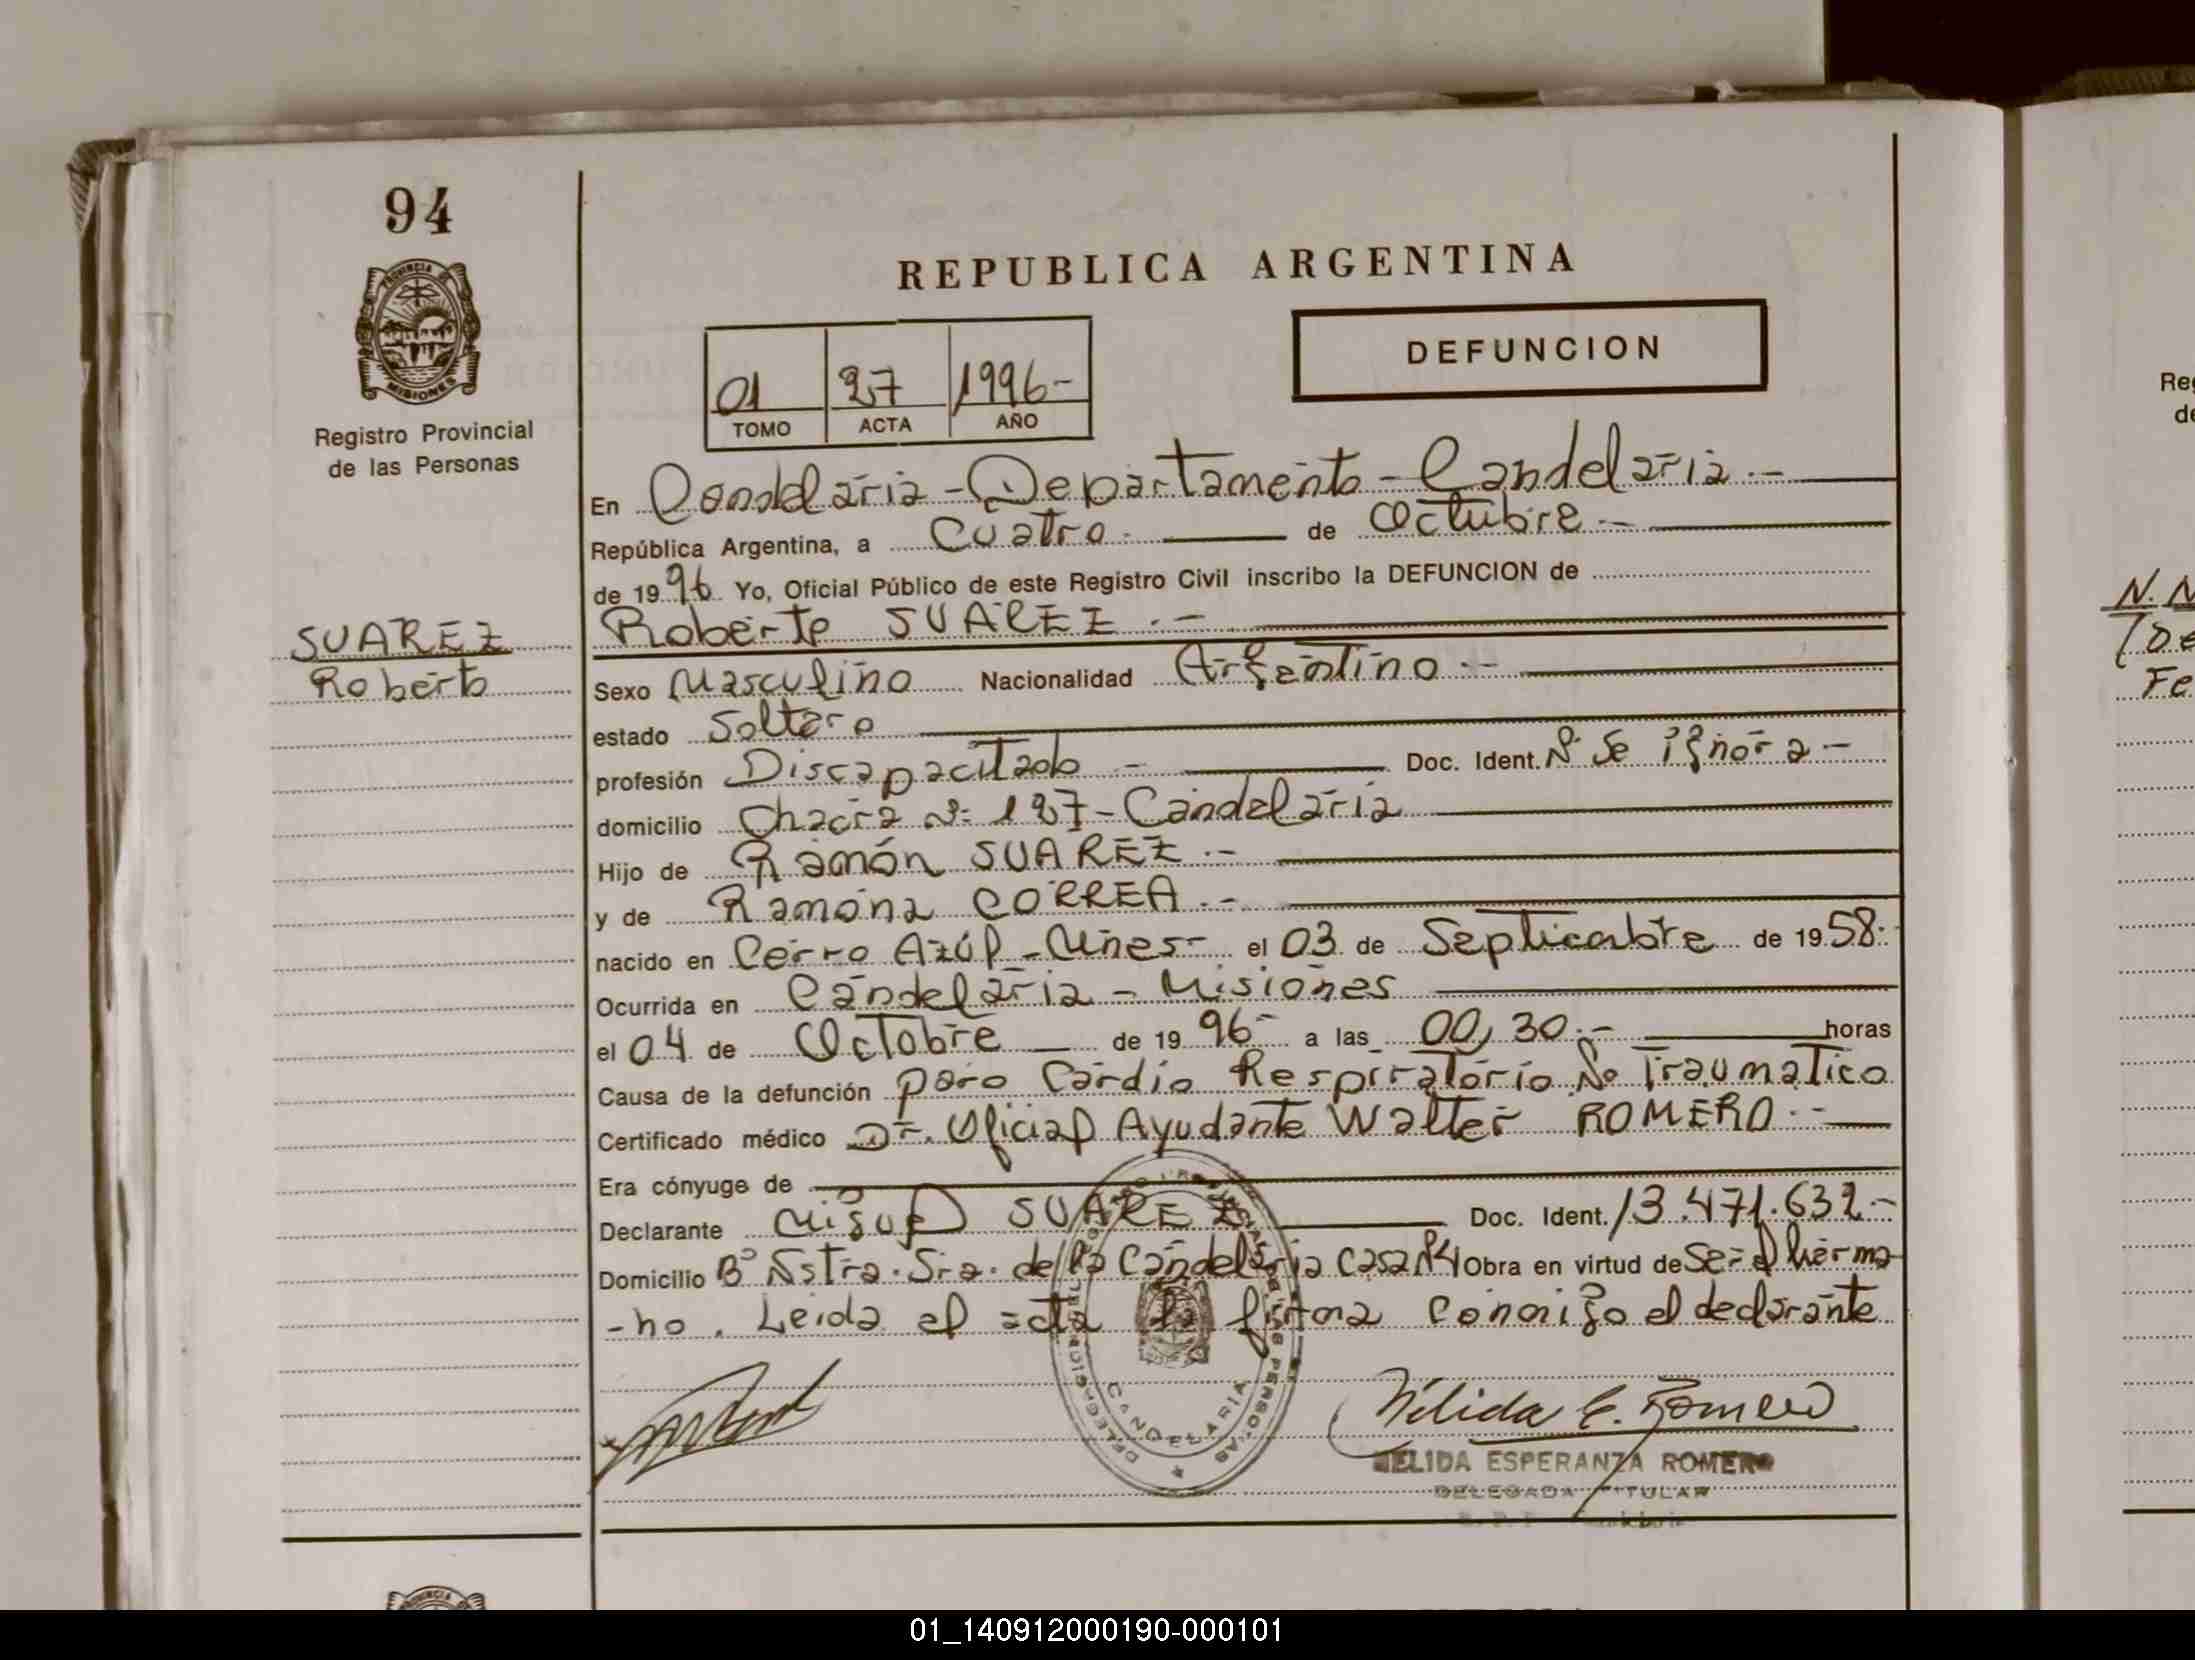 94
PROVINCIA DE
MISIONES
Registro Provincial
de las Personas
SUAREZ
Roberto
REPUBLICA ARGENTINA
01 27 1996-
TOMO ACTA AÑO
DEFUNCION
En Candelaria - Departamento - Candelaria.-
República Argentina, a Cuatro.- de Octubre.-
de 1996 Yo, Oficial Público de este Registro Civil inscribo la DEFUNCION de
Roberto SUAREZ.-
Sexo Masculino Nacionalidad Argentino.-
estado Soltero
profesión Discapacitado - Doc. Ident. Nº Se ignora -
domicilio Chacra Nº 127 - Candelaria
Hijo de Ramón SUAREZ.-
y de Ramona CORREA.-
nacido en Cerro Azúl - Mnes- el 03 de Septiembre de 1958.-
Ocurrida en Candelaria - Misiones
el 04 de Octobre de 1996- a las 00,30.- horas
Causa de la defunción paro Cardio Respirratorio No Traumatico
Certificado médico Dr. Oficial Ayudante Walter ROMERO.-
Era cónyuge de
Declarante Miguel SUAREZ Doc. Ident. 13.471.632.-
Domicilio Bº Nstra. Sra. de la Candelaria Casa Nº4 Obra en virtud de Ser el herma-
-no. Leida el acta la firma conmigo el declarante
CANDELARIA
Nélida E. Romero
NELIDA ESPERANZA ROMERO
DELEGADA TITULAR
Reg
de
N.N
Fe
01_140912000190-000101